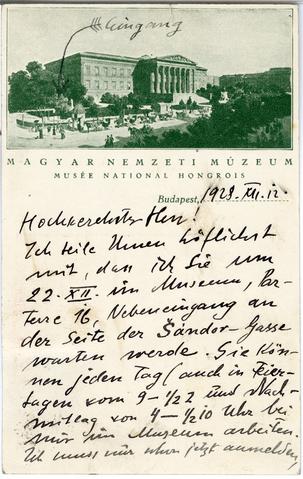 Eingang
MAGYAR NEMZETI MÚZEUM
MUSÉE NATIONAL HONGROIS
Budapest, 1929. XII. 12.
Hochverehrter Herr!
Ich teile Ihnen höflichst
mit, dass ich Sie um
22. XII. im Museum, Par-
terre 16, Nebeneingang an
der Seite der Sándor-Gasse
warten werde. Sie kön-
nen jeden Tag (auch in Feier-
tagen von 9-1/22 und Nach-
mittag von 4-1/210 Uhr bei
mir im Museum arbeiten.
Ich muss nur schon jetzt anmelden,